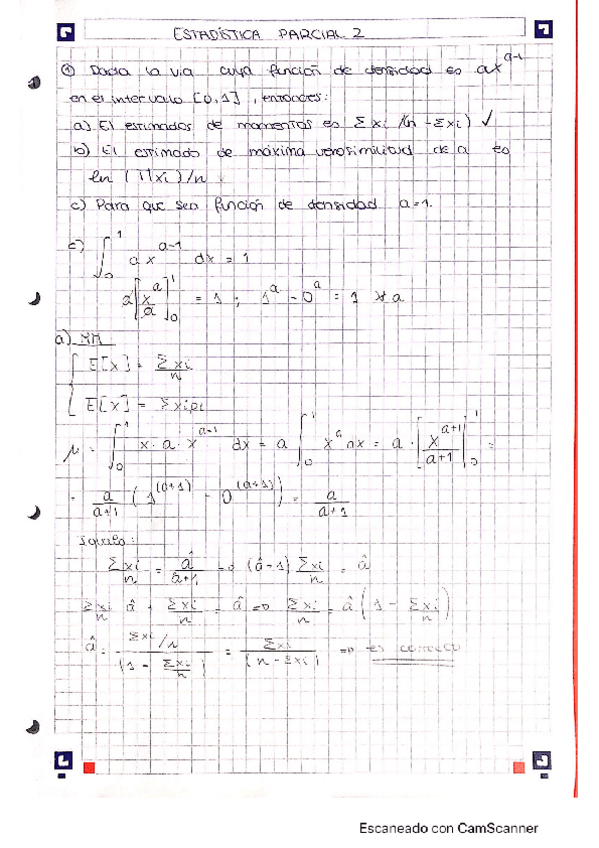 ESTADÍSTICA PARCIAL 2
① Dada la v.a cuya función de densidad es ax^(a-1)
en el intervalo [0,1], entonces:
a) El estimador de momentos es Σxi/(n-Σxi) ✓
b) El estimado de máxima verosimilitud de a es
ln(Πxi)/n
c) Para que sea función de densidad a=1.
c) ∫₀¹ a x^(a-1) dx = 1
a[x^a/a]₀¹ = 1 ; 1^a - 0^a = 1 ∀a
a) MM
{ E[x] = Σxi/n
E[x] = Σxipi
μ = ∫₀¹ x·a·x^(a-1) dx = a ∫₀¹ x^a dx = a·[x^(a+1)/(a+1)]₀¹ =
= a/(a+1) (1^(a+1) - 0^(a+1)) = a/(a+1)
Igualo:
Σxi/n = â/(â+1) => (â+1) Σxi/n = â
Σxi/n â + Σxi/n = â => Σxi/n = â(1 - Σxi/n)
â = (Σxi/n)/(1 - Σxi/n) = Σxi/(n-Σxi) => es correcto
Escaneado con CamScanner